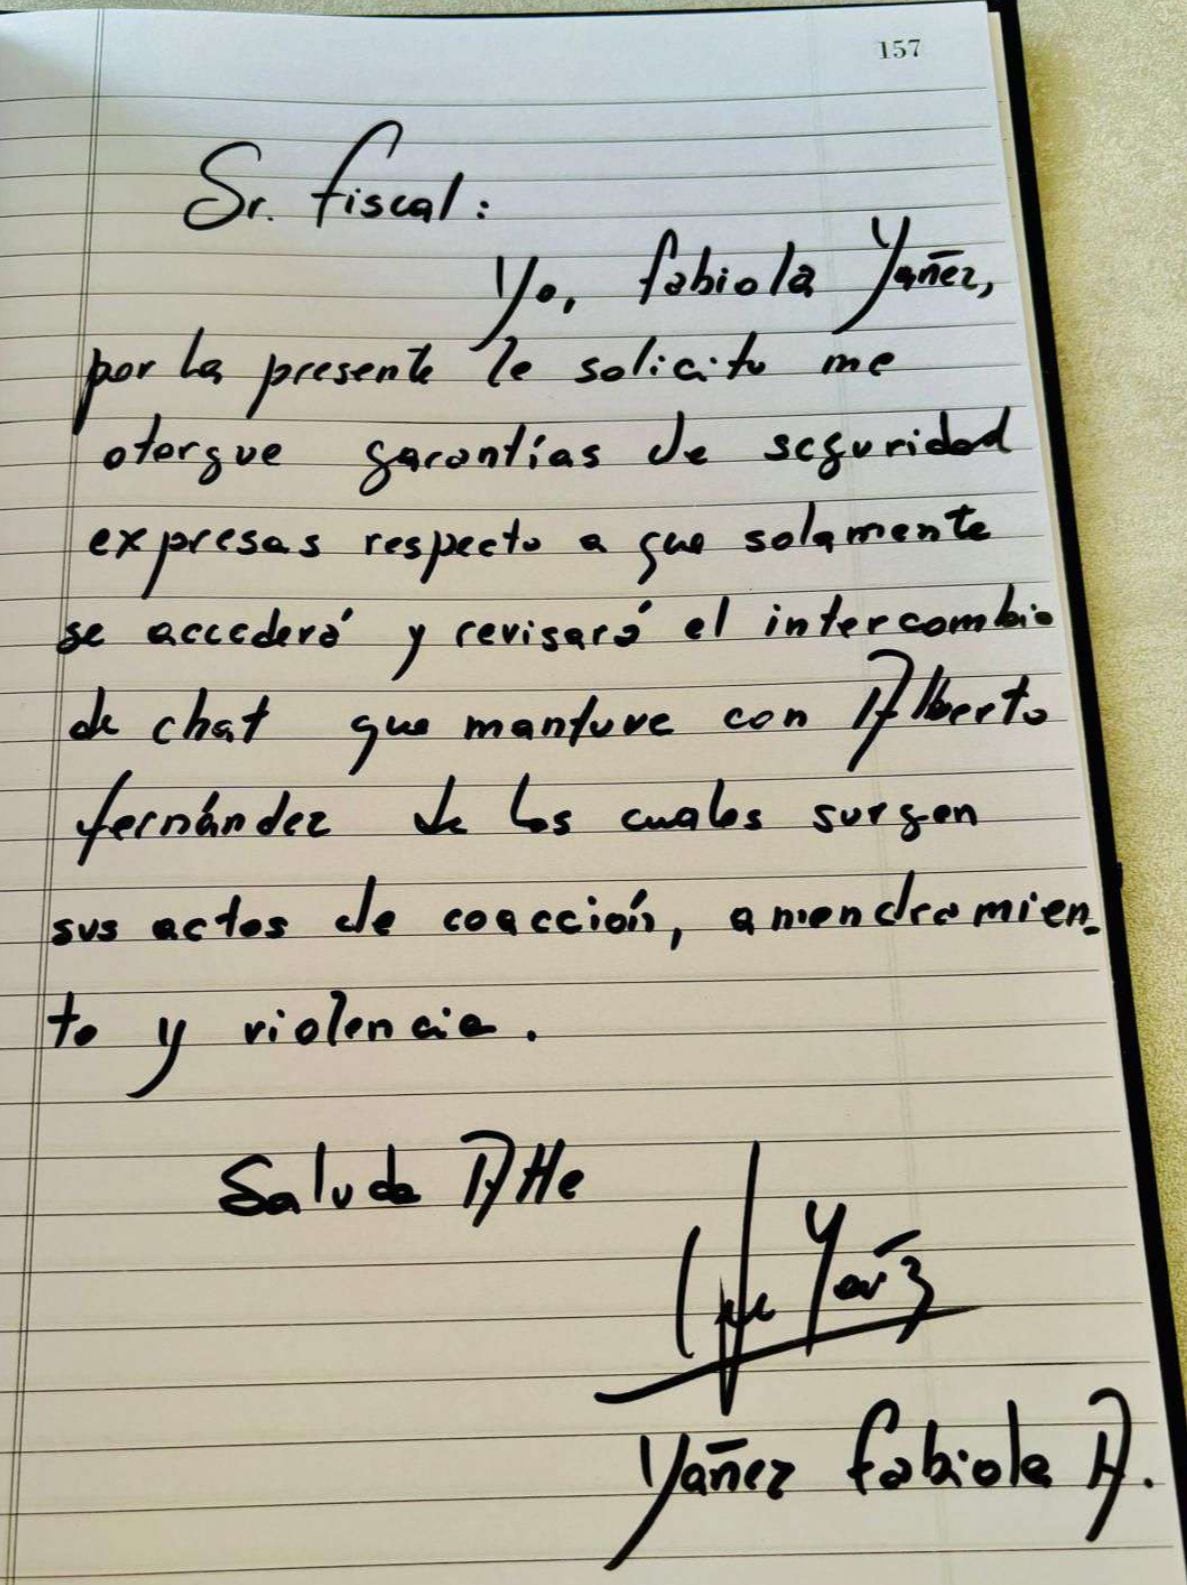 157
Sr. Fiscal:
Yo, Fabiola Yañez,
por la presente le solicito me
otorgue garantías de seguridad
expresas respecto a que solamente
se accederá y revisará el intercambio
de chat que mantuve con Alberto
Fernández de los cuales surgen
sus actos de coacción, amendramien-
to y violencia.
Saluda Atte
Yañez
Yañez Fabiola A.